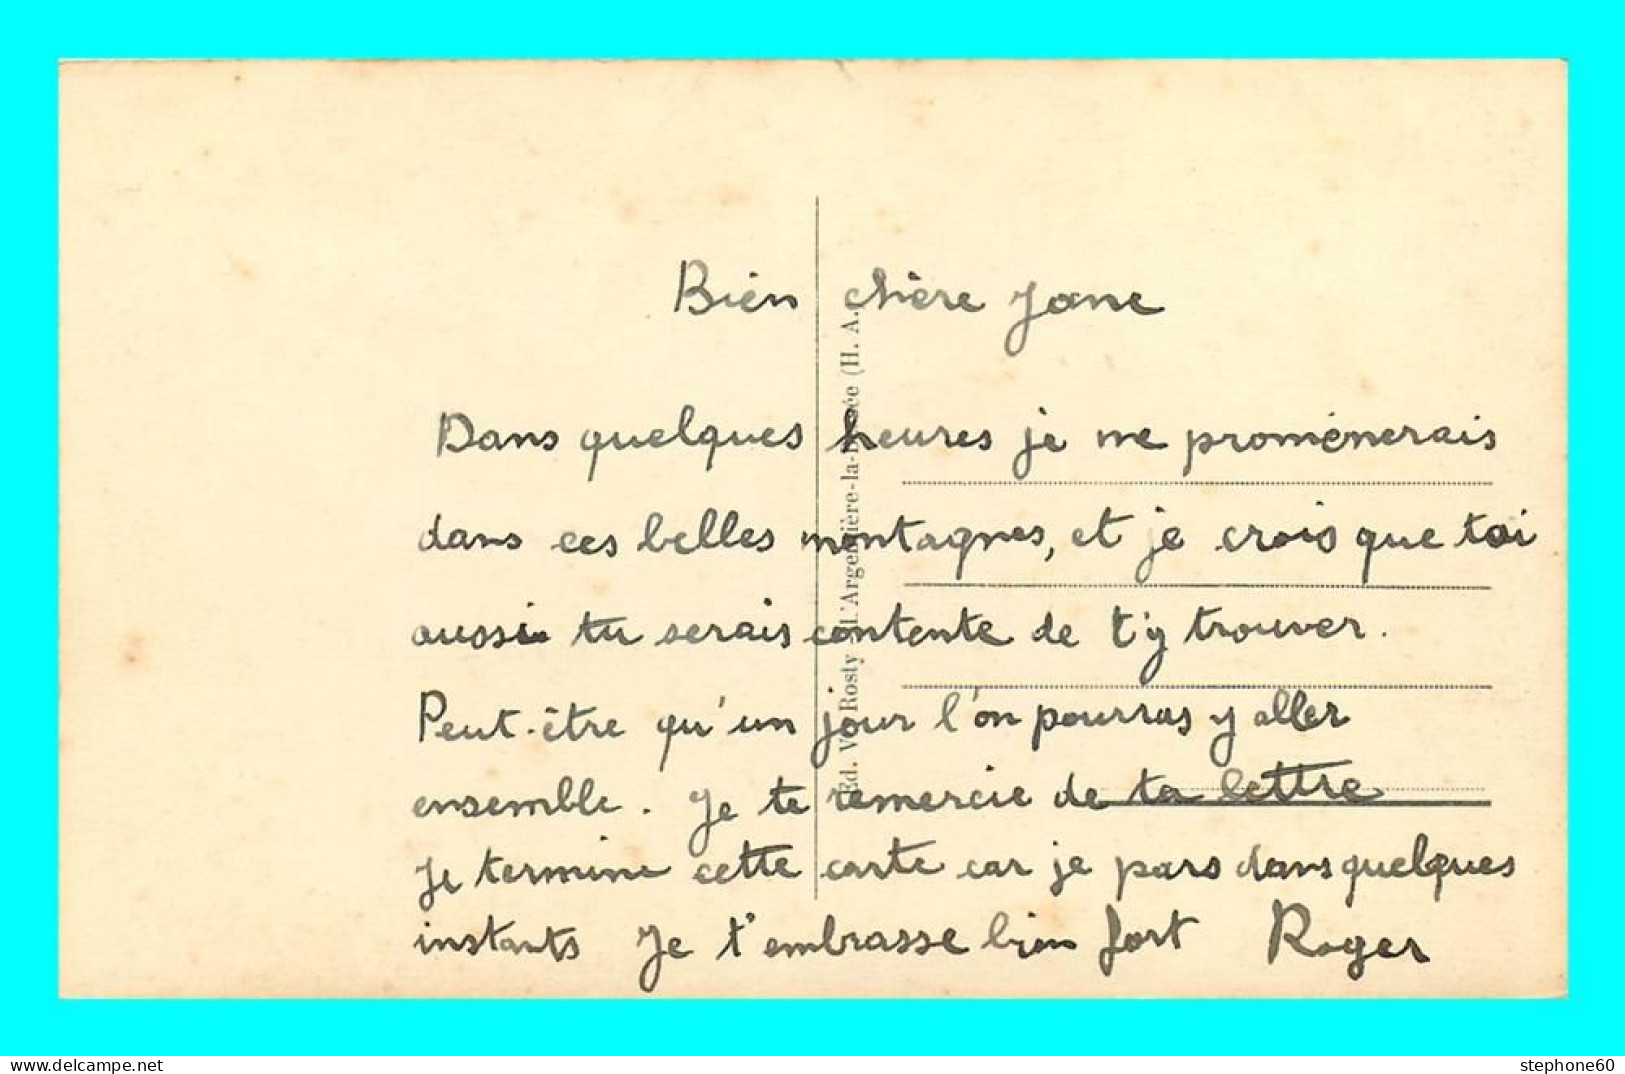 Bien chère Jane
Dans quelques heures je me promènerais
dans ces belles montagnes, et je crois que toi
aussi tu serais contente de t'y trouver.
Peut-être qu'un jour l'on pourras y aller
ensemble. Je te remercie de ta lettre
Je termine cette carte car je pars dans quelques
instants Je t'embrasse bien fort Roger
Ed. Rosty L'Argentière-la-Bessée (H. A.
www.delcampe.net
stephone60